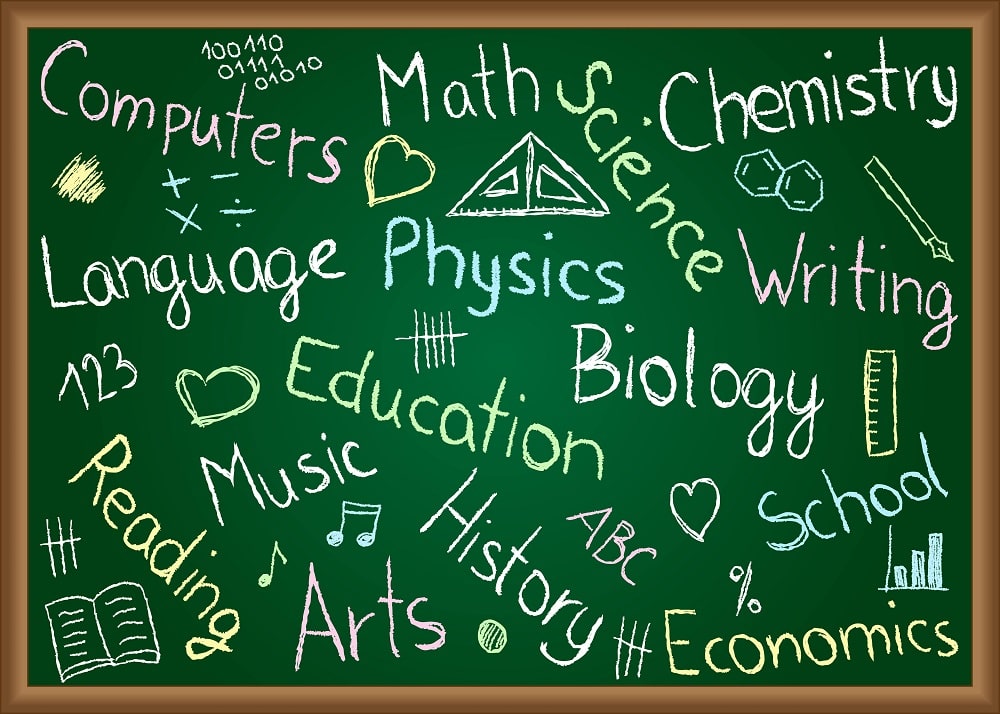 Computers
100110
01111
01010
Math
Science
Chemistry
+ −
× ÷
Language
Physics
Writing
123
Education
Biology
Reading
Music
History
ABC
School
Arts
%
Economics